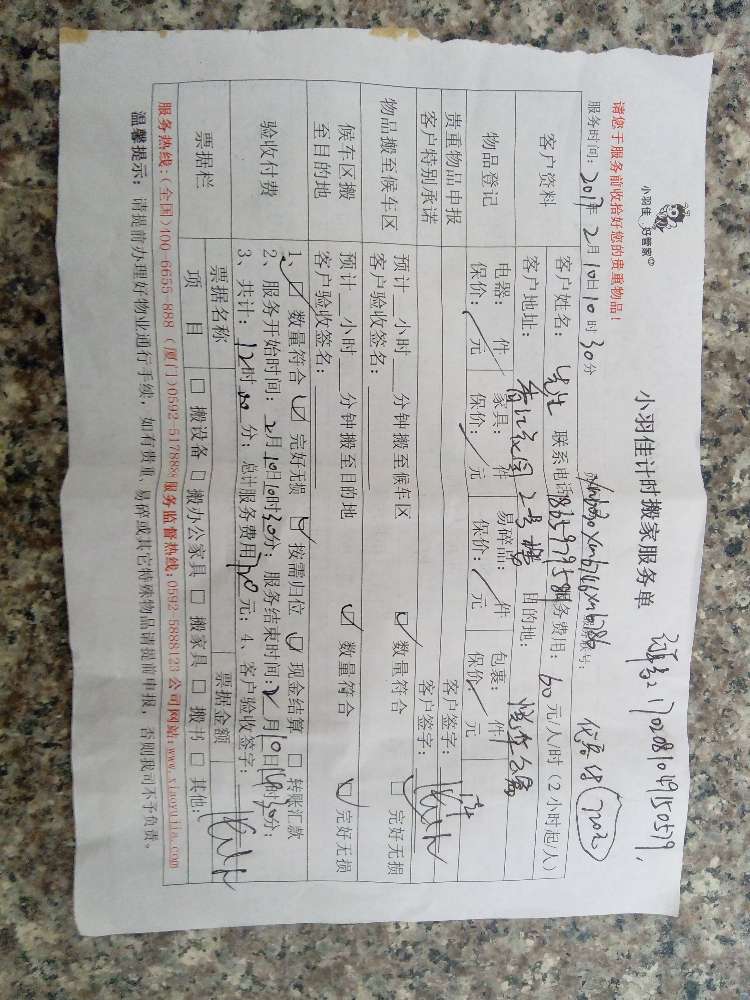 小羽佳 好管家
小羽佳计时搬家服务单
请您于服务前收拾好您的贵重物品!
服务时间: 2017年 2月10日10时30分
客户资料
客户姓名: 先生 联系电话 服务费用: 60元/人/时(2小时起/人)
客户地址: 2号楼 目的地:
物品登记
电器: 件 家具: 件 易碎品: 件 包裹: 件
保价: 元 保价: 元 保价: 元 保价: 元
贵重物品申报 客户签字:
客户特别承诺 客户签字:
物品搬至候车区
预计__小时__分钟搬至候车区 数量符合 完好无损
客户验收签名:
候车区搬
至目的地
预计__小时__分钟搬至目的地 数量符合 完好无损
客户验收签名:
验收付费
1、 数量符合 完好无损 按需归位 现金结算 转账汇款
2、服务开始时间: 2月10日10时30分; 服务结束时间: 2月10日 时30分;
3、共计: 12时00分; 总计服务费用 元; 4、客户验收签字:
票据栏
票据名称 票据金额
项 目 搬设备 搬办公家具 搬家具 搬书 其他:
服务热线:(全国)400-6655-888(厦门)0592-5178888服务监督热线:0592-5888123 公司网站:www.xiaoyujia.com
温馨提示: 请提前办理好物业通行手续, 如有贵重、易碎或其它特殊物品请提前申报, 否则我司不予负责。